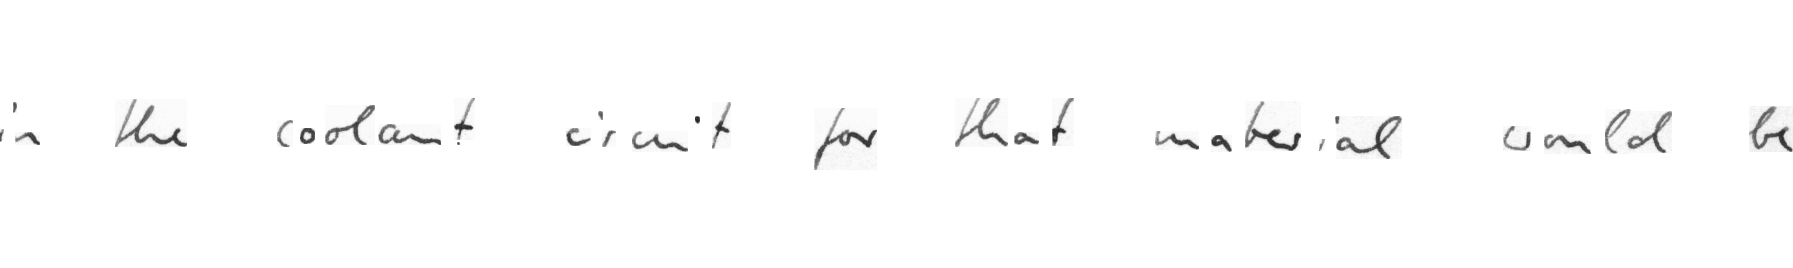 in the coolant circuit for that material would be